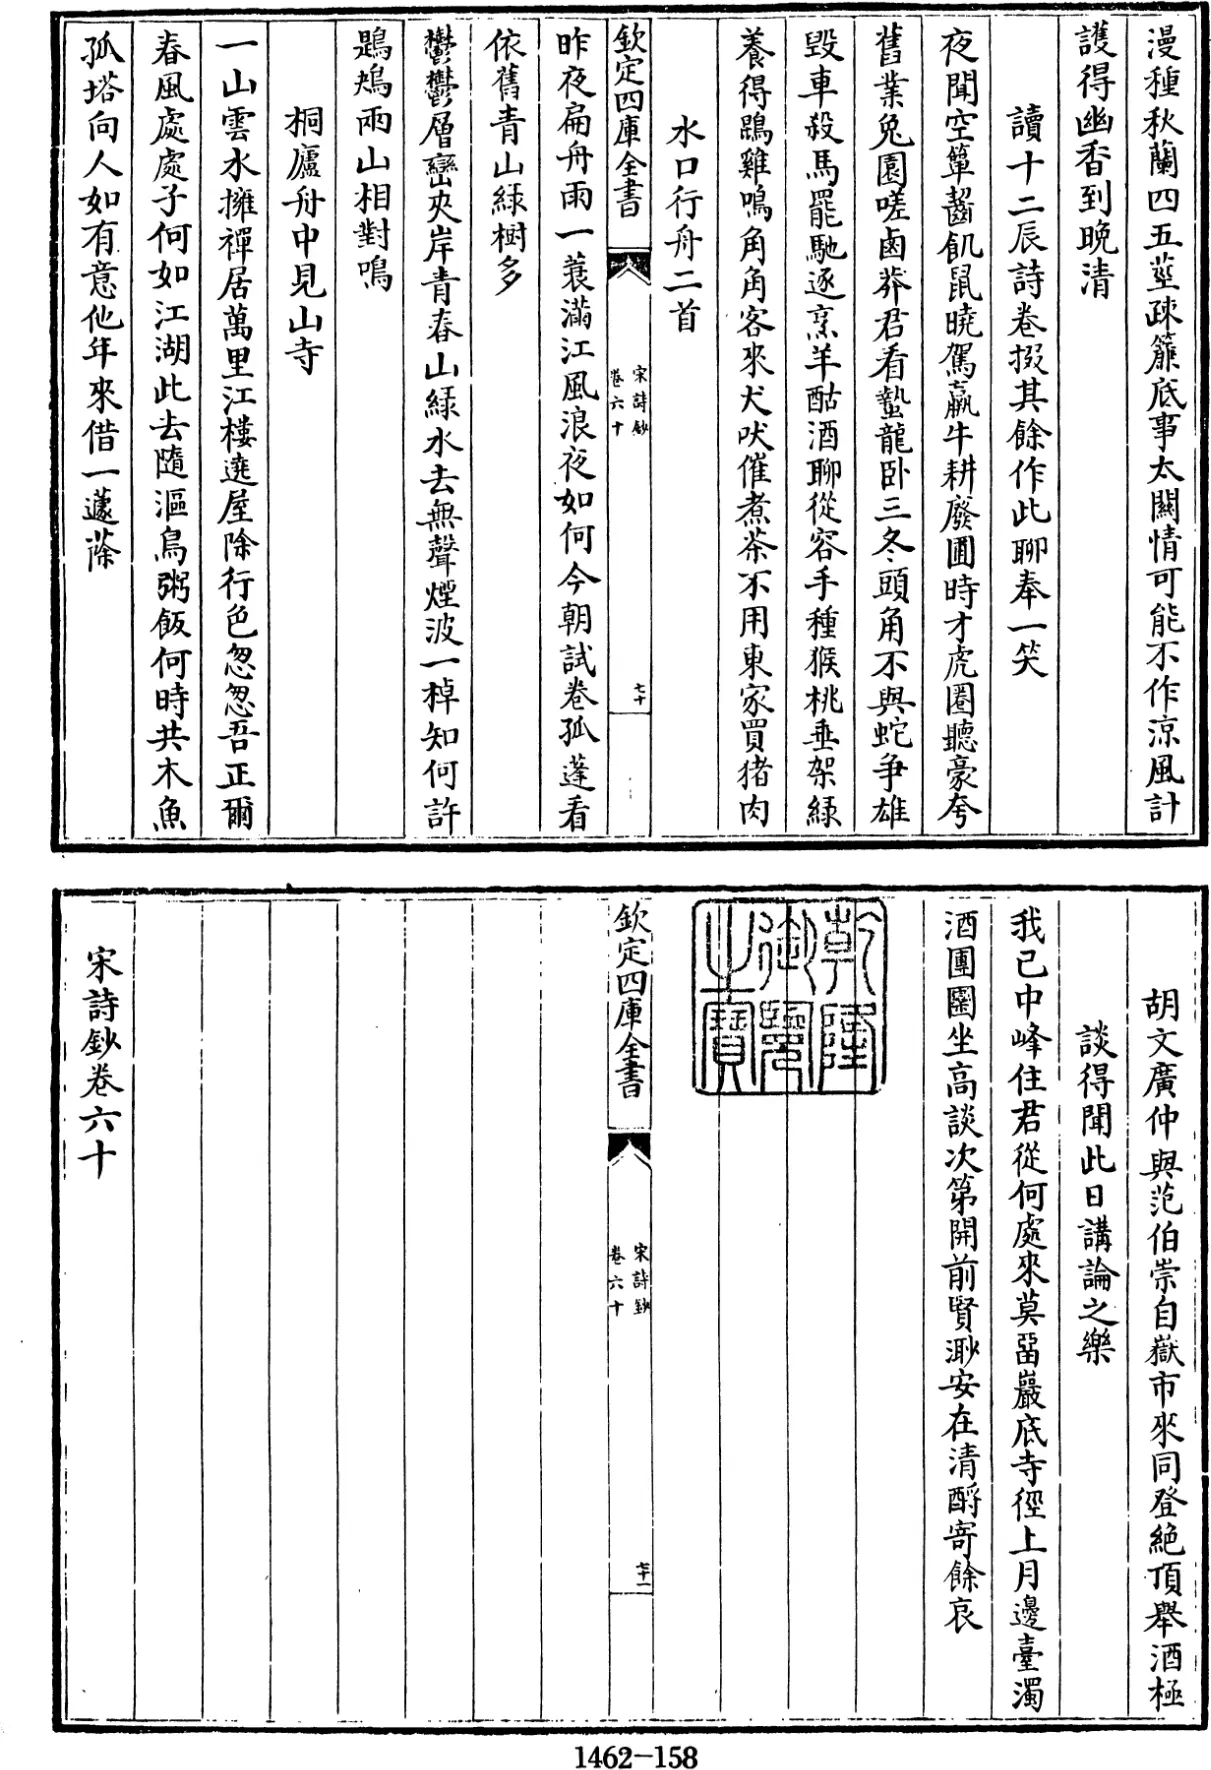 漫種秋蘭四五莖疎簾底事太關情可能不作涼風計
護得幽香到晚清
讀十二辰詩卷掇其餘作此聊奉一笑
夜聞空簞齧飢鼠曉駕羸牛耕廢圃時才虎圈聽豪夸
舊業兔園嗟鹵莽君看蟄龍卧三冬頭角不與蛇爭雄
毀車殺馬罷馳逐烹羊酤酒聊從容手種猴桃垂架綠
養得鵾雞鳴角角客來犬吠催煮茶不用東家買猪肉
水口行舟二首
欽定四庫全書
宋詩鈔
卷六十
七十
昨夜扁舟雨一蓑滿江風浪夜如何今朝試卷孤篷看
依舊青山綠樹多
鬱鬱層巒夾岸青春山綠水去無聲煙波一棹知何許
鶗鴂兩山相對鳴
桐廬舟中見山寺
一山雲水擁禪居萬里江樓遶屋除行色怱怱吾正爾
春風處處子何如江湖此去隨漚鳥粥飯何時共木魚
孤塔向人如有意他年來借一蘧蒢
胡文廣仲與范伯崇自嶽市來同登絶頂舉酒極
談得聞此日講論之樂
我已中峰住君從何處來莫畱巖底寺徑上月邊臺濁
酒團圞坐高談次第開前賢渺安在清酹寄餘哀
乾隆
御覽
之寶
欽定四庫全書
宋詩鈔
卷六十
七十一
宋詩鈔卷六十
1462-158